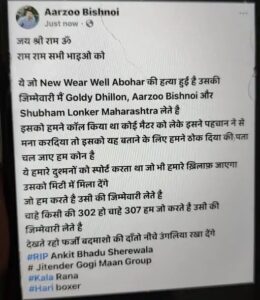 Aarzoo Bishnoi
Just now
जय श्री राम ॐ
राम राम सभी भाइओ को
ये जो New Wear Well Abohar की हत्या हुई है उसकी
जिम्मेवारी मैं Goldy Dhillon, Aarzoo Bishnoi और
Shubham Lonker Maharashtra लेते है
इसको हमने कॉल किया था कोई मैटर को लेके इसने पहचान ने से
मना करदिया तो इसको यह बताने के लिए हमने ठोक दिया की पता
चल जाए हम कोन है
ये हमारे दुश्मनों को स्पोर्ट करता था जो भी हमारे ख़िलाफ़ जाएगा
उसको मिटी में मिला देंगे
जो हम करते है उसी की जिमेवारी लेते है
चाहे किसी की 302 हो चाहे 307 हम जो करते है उसी की
जिमेवारी लेते है
देखते रहो फर्जी बदमाशो की दाँतो नीचे उंगलिया रखा देंगे
#RIP Ankit Bhadu Sherewala
# Jitender Gogi Maan Group
#Kala Rana
#Hari boxer